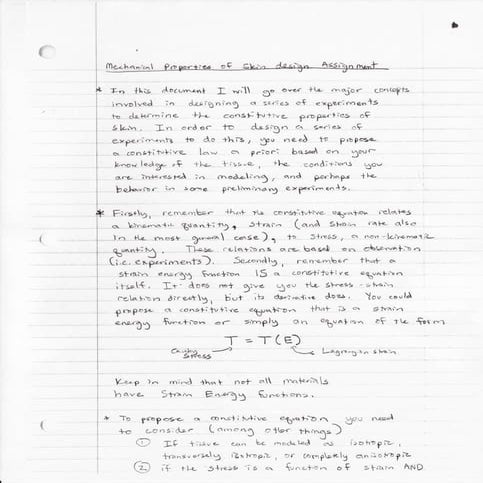 Mechanical Properties of Skin design Assignment
* In this document I will go over the major concepts
involved in designing a series of experiments
to determine the constitutive properties of
skin. In order to design a series of
experiments to do this, you need to propose
a constitutive law a priori based on your
knowledge of the tissue, the conditions you
are interested in modeling, and perhaps the
behavior in some preliminary experiments.
* Firstly, remember that the constitutive equation relates
a kinematic quantity, strain (and strain rate also
in the most general case), to stress, a non-kinematic
quantity. These relations are based on observation
(i.e. experiments). Secondly, remember that a
strain energy function IS a constitutive equation
itself. It does not give you the stress-strain
relation directly, but its derivative does. You could
propose a constitutive equation that is a strain
energy function or simply an equation of the form
T = T(E)
Cauchy stress
Lagrangian strain
Keep in mind that not all materials
have Strain Energy functions.
* To propose a constitutive equation you need
to consider (among other things)
① If tissue can be modeled as isotropic,
transversely isotropic, or completely anisotropic
② if the stress is a function of strain AND